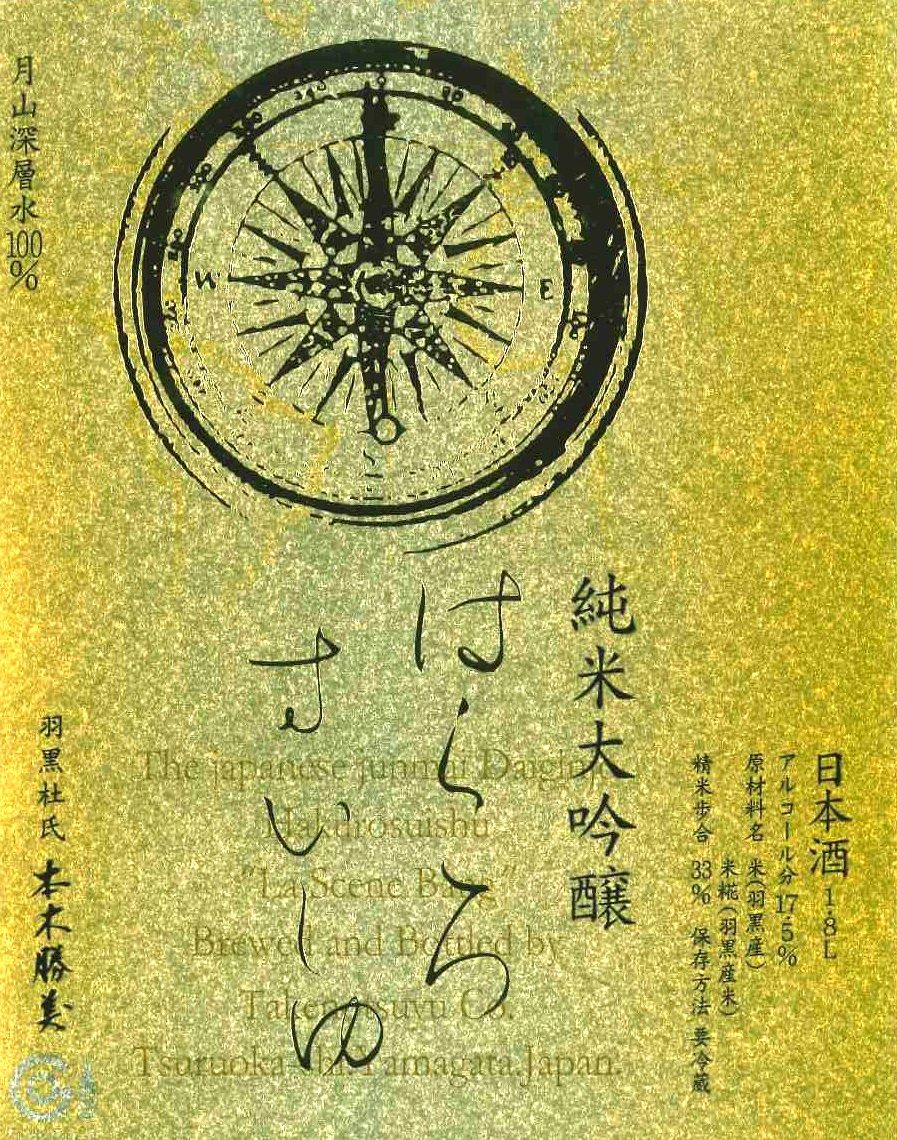 月山深層水100%
W
E
純米大吟醸
はくろ
すいしゆ
日本酒 1.8L
アルコール分 17.5%
原材料名 米(羽黒産)
米糀(羽黒産米)
精米歩合 33% 保存方法 要冷蔵
羽黒杜氏 本木勝美
The japanese junmai Daiginjo
Hakurosuishu
"La Scene
Brewed and Bottled by
Takenotsuyu Co.
Tsuruoka-shi.Yamagata.Japan.